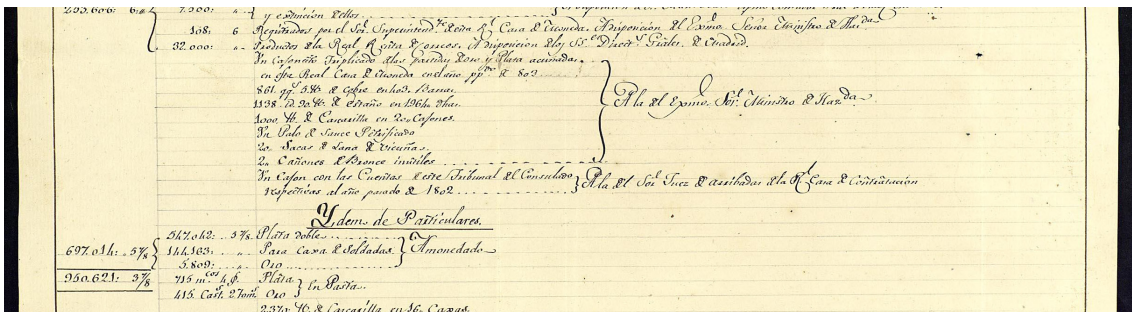 y extincion de ellos.
168: 6 Registrados por el Sor. Superintend.te de esta Rl. Casa de Moneda. A disposicion del Exmo. Señor Ministro de Haz.da
32.000: " Productos de la Real Renta de Correos. A disposicion de los SS.es Direct.s Grales. de Madrid.
Un Cajoncito Triplicado de las partidas de oro y Plata acuñadas
en esta Real Casa de Moneda en el año pp.do de 803
861. qq.s 5 lb. de Cobre en 403. Barras.
1138. id. 90. lb. de estaño en 1964. dhas.
1000. lb. de Cascarilla en 20. Cajones.
Un Palo de Sauce Petrificado
20. Sacas de Lana de Vicuñas.
2. Cañones de Bronce inutiles
A la del Exmo. Sor. Ministro de Haz.da
Un Cajon con las Cuentas de este Tribunal del Consulado
respectivas al año pasado de 1802
A la del Sor. Juez de arribadas de la Rl. Casa de Contratacion
Ydem de Particulares.
547.042: 5 7/8 Plata doble
697.014: 5 7/8 144.163: " Para Caxa de Soldadas. Amonedado
5.809: " Oro
950.621: 3 7/8 715 m.cos 4 Plata
415. Cast.s 2 tom.s Oro En Pasta.
2370. lb. de Cascarilla en 16. Caxas.